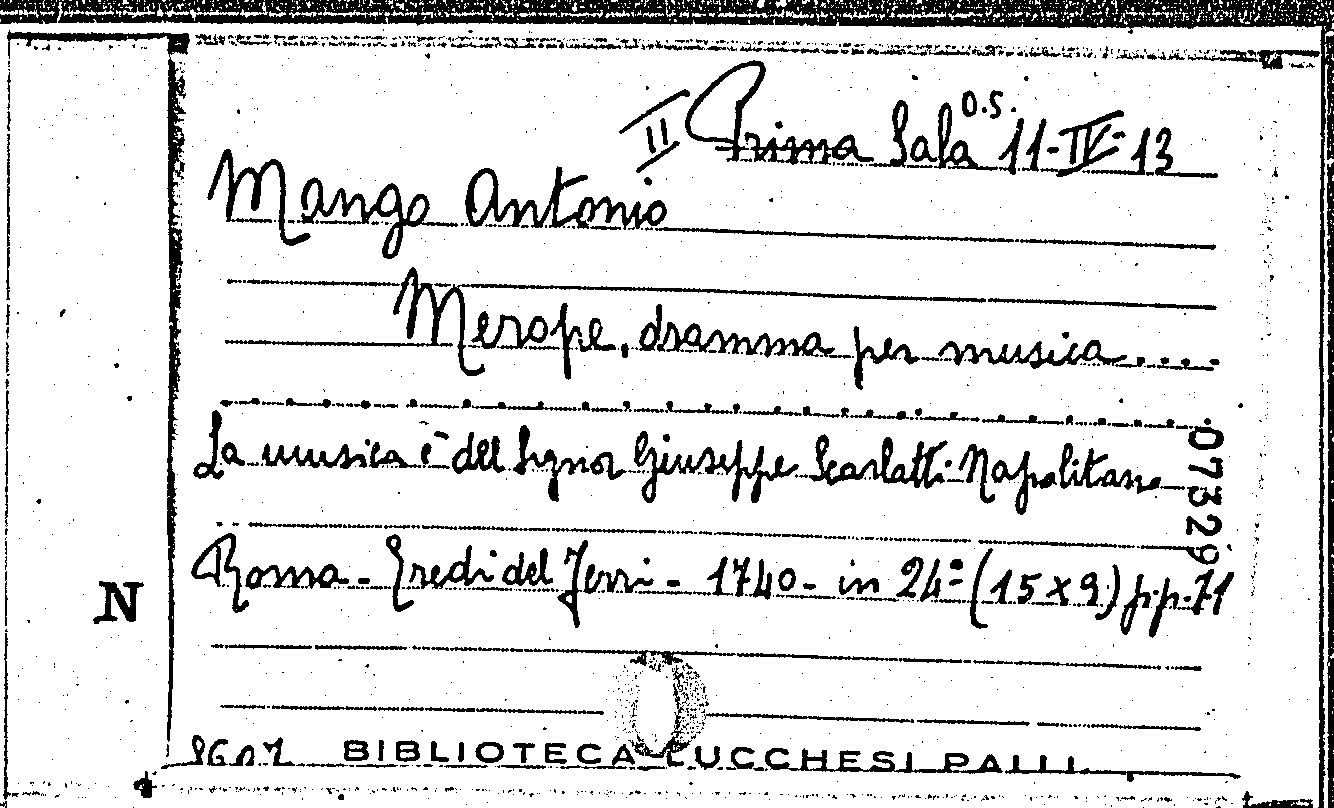 II Prima Sala O.S. 11-IV-13
Mango Antonio
Merope, dramma per musica....
La musica è del Signor Giuseppe Scarlatti Napolitano
07329
Roma - Eredi del Ferri - 1740 - in 24º (15 x 9) pp. 71
N
8607 BIBLIOTECA LUCCHESI PALLI